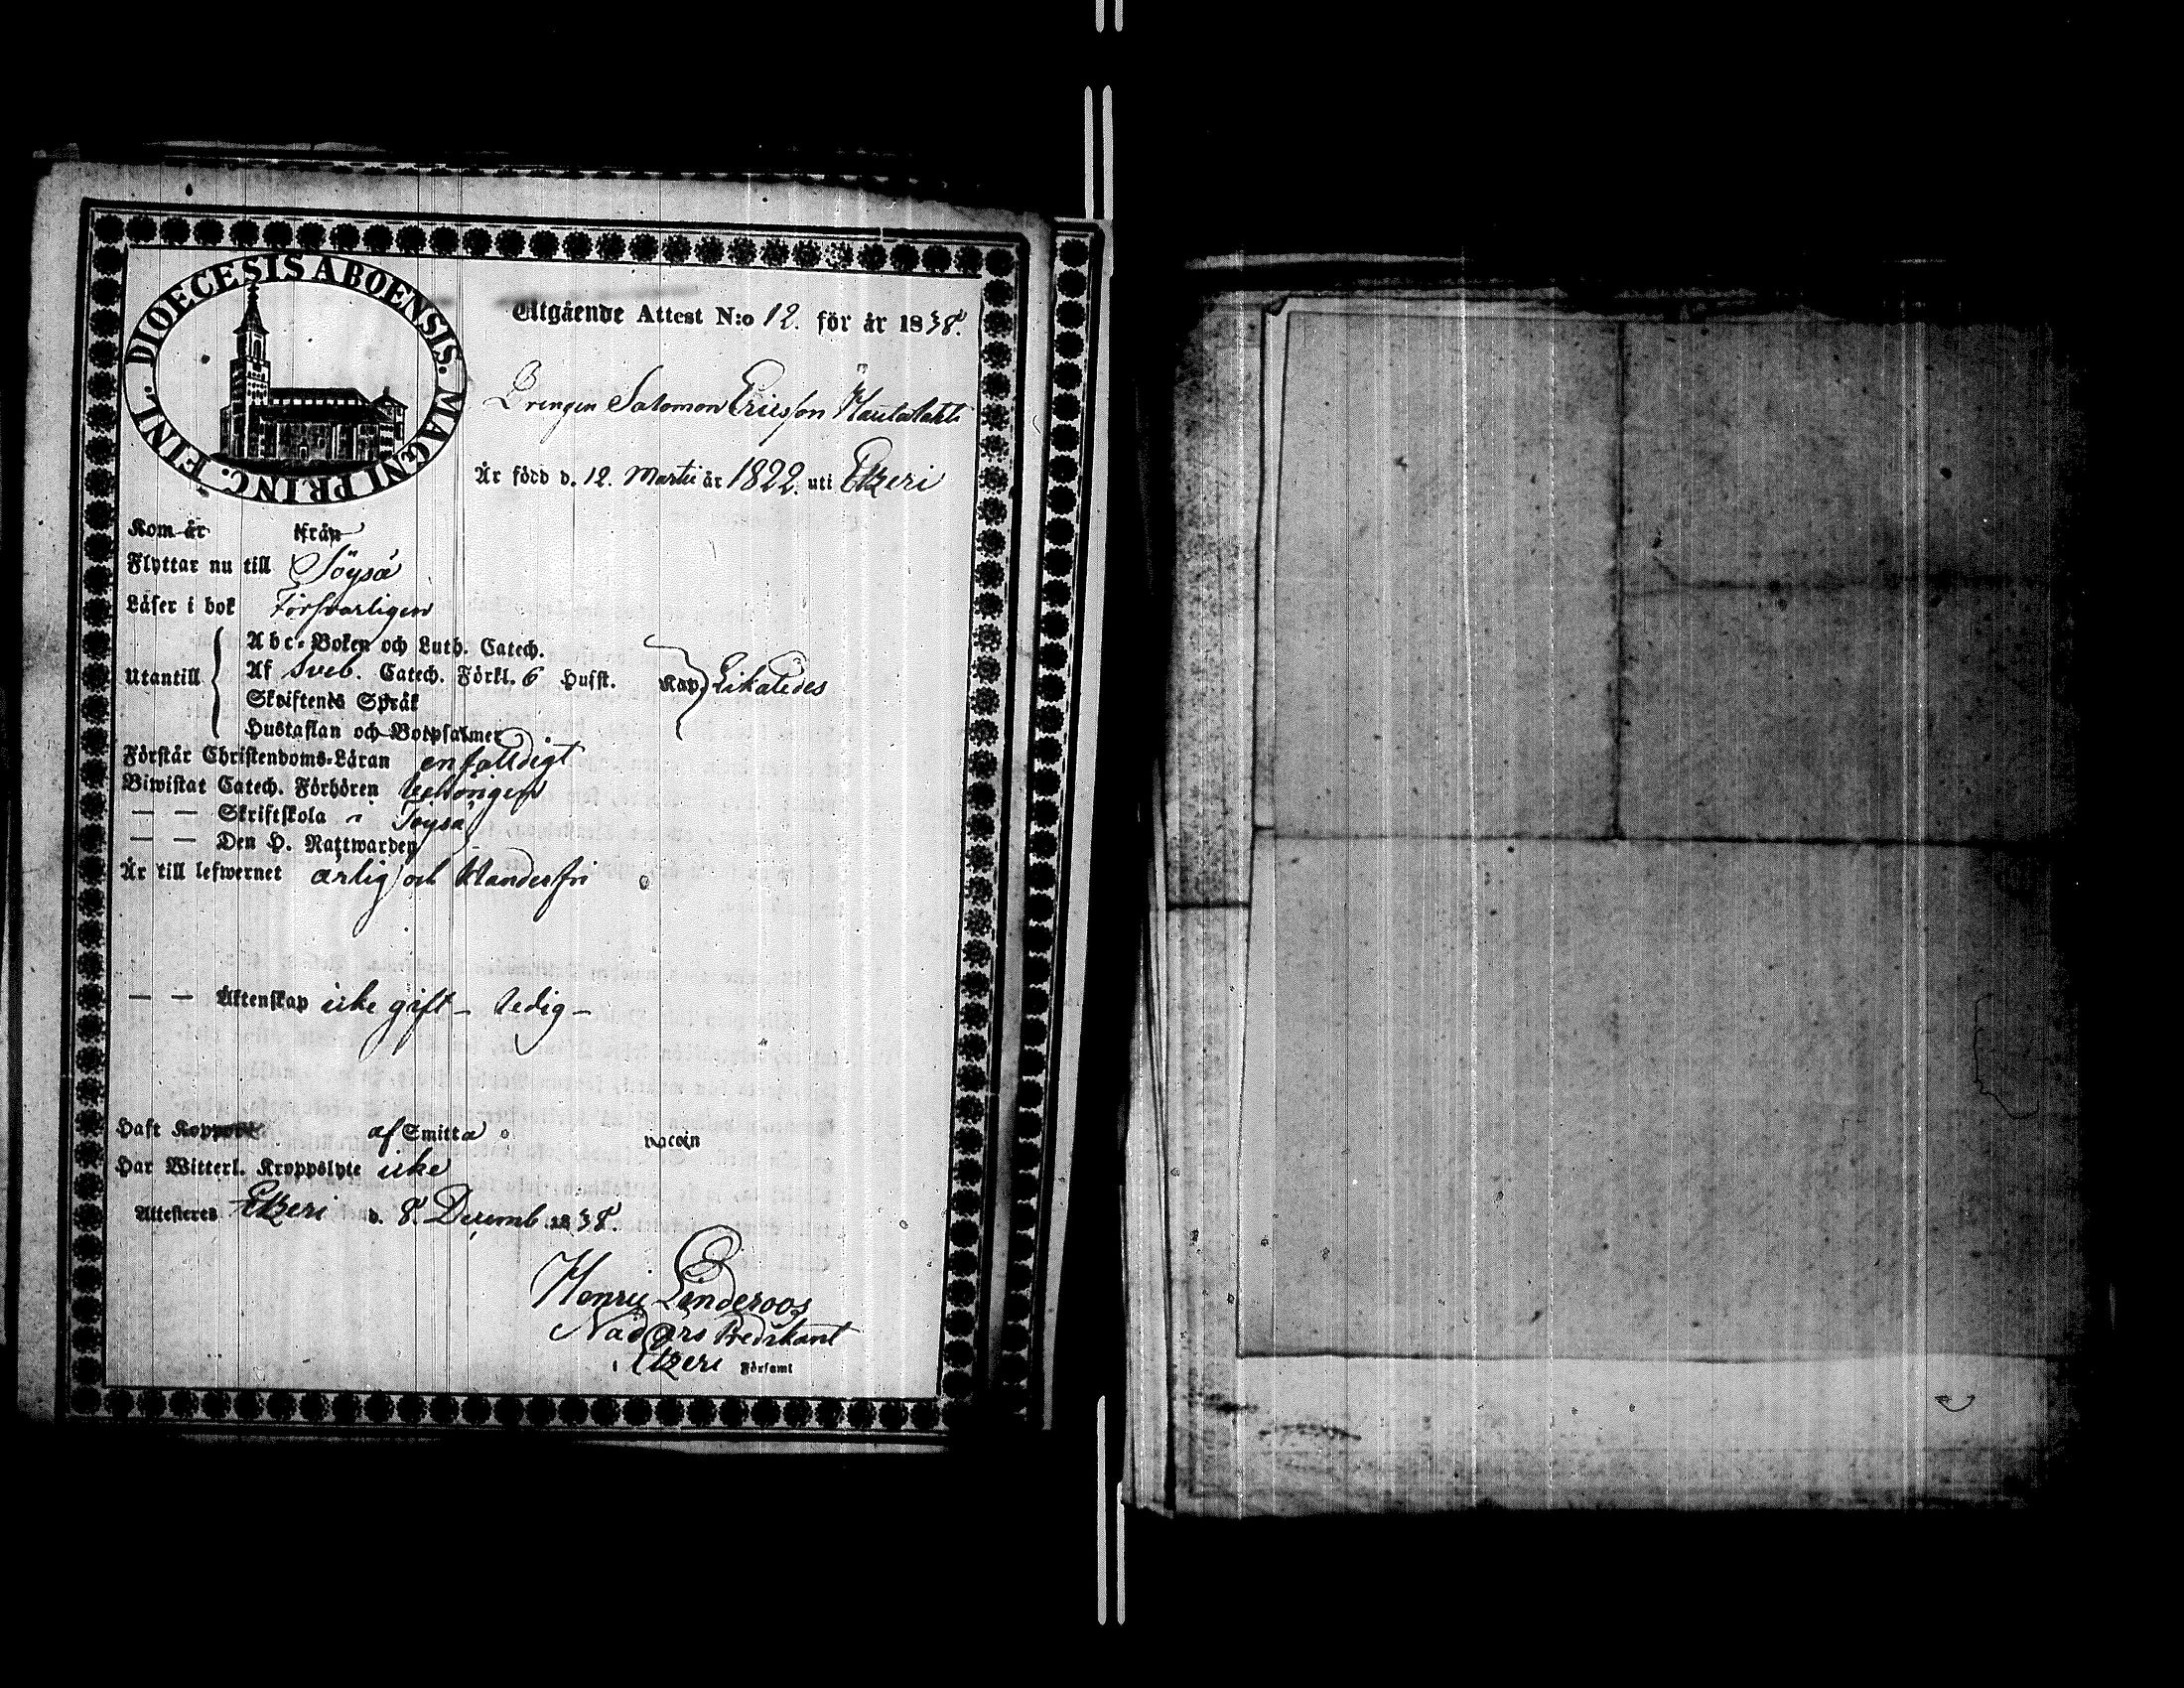 DIOECESIS ABOENSIS. MAGNI PRINC. FINL.
Utgående Attest N:o 12. för år 1838.
Drengen Salomon Ericsson
Är född d. 12. Martii år 1822. uti Etzeri
Kom år ifrån
Flyttar nu till Töysä
Läser i bok Försvarligen
Utantill
Abc-Boken och Luth. Catech.
Af Sveb. Catech. Förkl. 6 Hufst. Kap. Likaledes
Skriftenes Språk
Hustaflan och Botpsalmer
Förstår Christendoms-Läran enfalldigt
Biwistat Catech. Förhören behörigen
— — Skriftskola i Töysä
— — Den H. Nattwarden
Är till lefwernet ärlig och klanderfri
— — Äktenskap icke gift – ledig –
Haft Koppor af Smitta Vaccin
Har Witterl. Kroppslyte icke
Attesteres Etzeri d. 8. Decemb. 1838.
Henric Linderoos
Nådårs Predikant
i Etzeri Församl